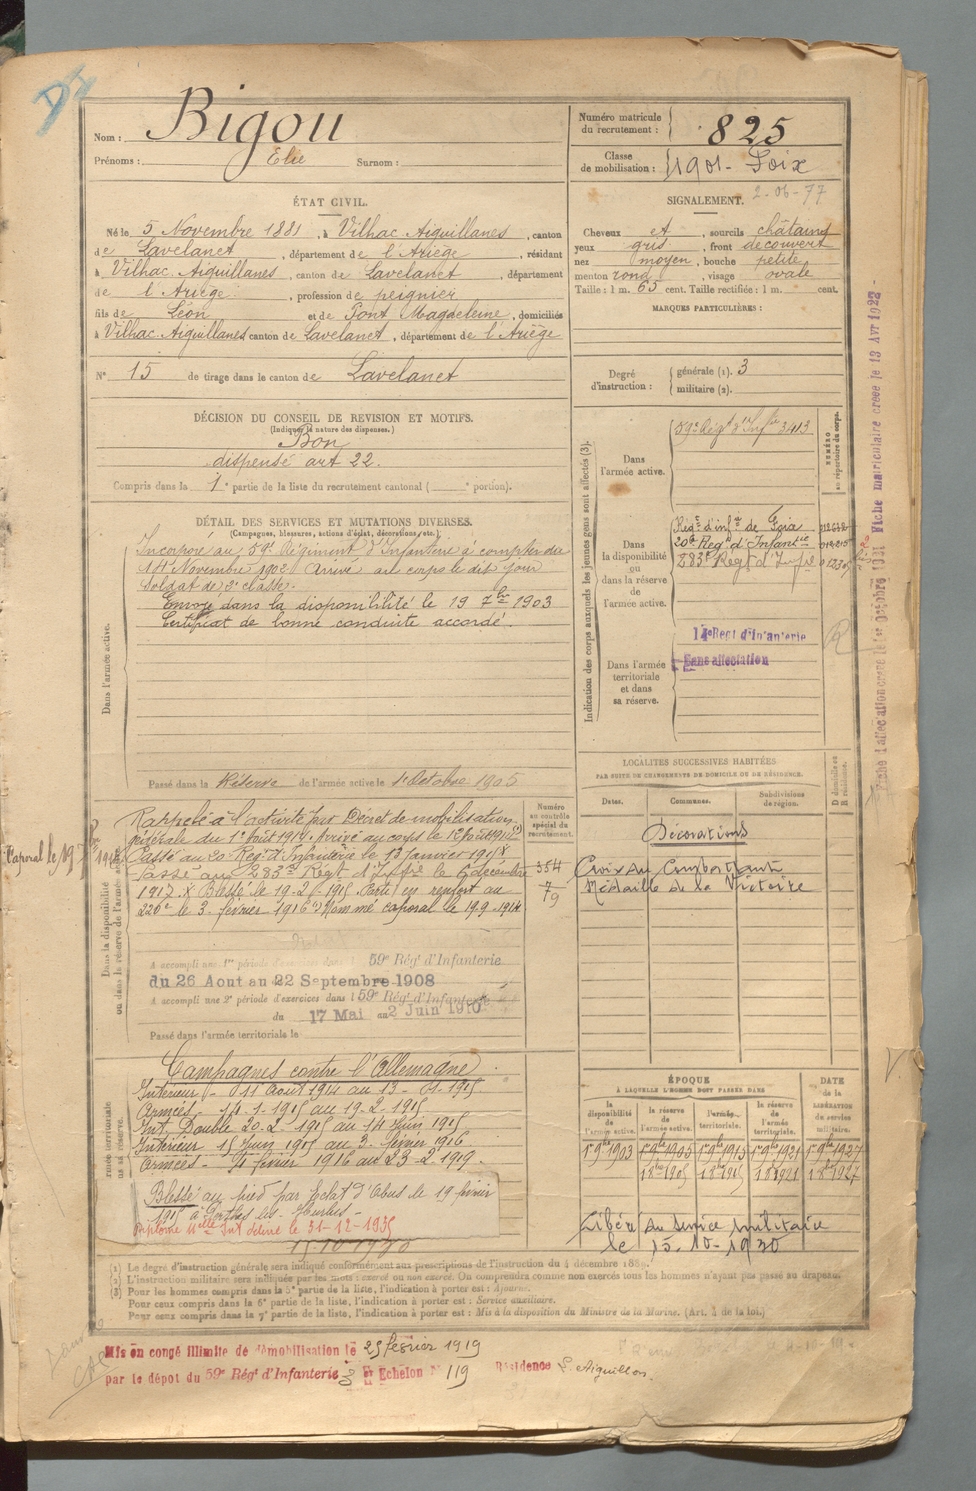 DI
Nom : Bigou
Prénoms : Elie Surnom :
Numéro matricule du recrutement : 825
Classe de mobilisation : 1901 - Foix
ÉTAT CIVIL.
Né le 5 Novembre 1881, à Vilhac Aiguillanes, canton
de Lavelanet, département de l'Ariège, résidant
à Vilhac Aiguillanes, canton de Lavelanet, département
de l'Ariège, profession de peignier
fils de Léon et de Pont Magdeleine, domiciliés
à Vilhac Aiguillanes canton de Lavelanet, département de l'Ariège
N° 15 de tirage dans le canton de Lavelanet
SIGNALEMENT. 2-06-77
Cheveux et, sourcils châtains
yeux gris, front découvert
nez moyen, bouche petite
menton rond, visage ovale
Taille : 1 m. 65 cent. Taille rectifiée : 1 m. cent.
MARQUES PARTICULIÈRES :
Degré d'instruction : générale (1). 3
militaire (2).
DÉCISION DU CONSEIL DE REVISION ET MOTIFS.
(Indiquer la nature des dispenses.)
Bon
dispensé art 22.
Compris dans la 1e partie de la liste du recrutement cantonal ( e portion).
DÉTAIL DES SERVICES ET MUTATIONS DIVERSES.
(Campagnes, blessures, actions d'éclat, décorations, etc.)
Dans l'armée active.
Incorporé au 59e Régiment d'Infanterie à compter du
14 Novembre 1902 Arrivé au corps le dit jour
soldat de 2e classe.
Envoyé dans la disponibilité le 19 7bre 1903
Certificat de bonne conduite accordé.
Passé dans la Réserve de l'armée active le 1 Octobre 1905
Indication des corps auxquels les jeunes gens sont affectés (3).
NUMÉRO au répertoire du corps.
Dans l'armée active.
59e Régt d'Infie 3413
Dans la disponibilité ou dans la réserve de l'armée active.
Régt d'infie de Foix
20e Regt d'Infantie
283e Regt d'Infie
Dans l'armée territoriale et dans sa réserve.
14e Regt d'Infanterie
Sans affectation
Fiche d'affectation créée le 1er Octobre 1931 Fiche matriculaire créée le 13 Avr 1922
LOCALITÉS SUCCESSIVES HABITÉES
PAR SUITE DE CHANGEMENTS DE DOMICILE OU DE RÉSIDENCE.
Dates. Communes. Subdivisions de région. D domicile ou R résidence.
Décorations
Croix du Combattant
Médaille de la Victoire
Dans la disponibilité ou dans la réserve de l'armée active.
Numéro au contrôle spécial du recrutement.
354
7
79
Rappelé à l'activité par Décret de mobilisation
générale du 1e Août 1914. Arrivé au corps le 12 Août 1914
Passé au 20 Regt d'Infanterie le 13 Janvier 1915
Passé au 283e Regt d'Infie le 6 décembre
1917. x Blessé le 19-2-1915 Parti en renfort au
220e le 3. février 1916 Nommé caporal le 19 9 1914
Caporal le 19 7bre 1914
A accompli une 1re période d'exercices dans le 59e Régt d'Infanterie
du 26 Aout au 22 Septembre 1908
A accompli une 2e période d'exercices dans le 59e Régt d'Infanterie
du 17 Mai au 2 Juin 1910
Passé dans l'armée territoriale le
Campagnes contre l'Allemagne
Intérieur - 11 Août 1914 au 13 - 01 - 1915
Armées - 14-1-1915 au 19-2-1915
Int. Double 20-2-1915 au 14 Juin 1915
Intérieur 15 Juin 1915 au 3 - février 1916
Armées - 4 février 1916 au 23-2-1919
Blessé au pied par Eclat d'Obus le 19 février
1915 à Perthes les Hurlus -
Diplôme délivré le 31-12-1935
15-10-1930
ÉPOQUE
À LAQUELLE L'HOMME DOIT PASSER DANS
la disponibilité de l'armée active. la réserve de l'armée active. l'armée territoriale. la réserve de l'armée territoriale. DATE de la LIBÉRATION du service militaire.
1 9bre 1903 1 9bre 1905 1 9bre 1915 1 9bre 1921 1 9bre 1927
1 8bre 1905 1 8bre 1915 1 8 1921 1 8bre 1927
Libéré du Service militaire
le 15. 10 - 1930
(1) Le degré d'instruction générale sera indiqué conformément aux prescriptions de l'instruction du 4 décembre 1889.
(2) L'instruction militaire sera indiquée par les mots : exercé ou non exercé. On comprendra comme non exercés tous les hommes n'ayant pas passé au drapeau.
(3) Pour les hommes compris dans la 5e partie de la liste, l'indication à porter est : Ajourné.
Pour ceux compris dans la 6e partie de la liste, l'indication à porter est : Service auxiliaire.
Pour ceux compris dans la 7e partie de la liste, l'indication à porter est : Mis à la disposition du Ministre de la Marine. (Art. 4 de la loi.)
Mis en congé illimité de démobilisation le 25 février 1919
par le dépot du 59e Régt d'Infanterie Echelon N° 119 Résidence L'Aiguillon.